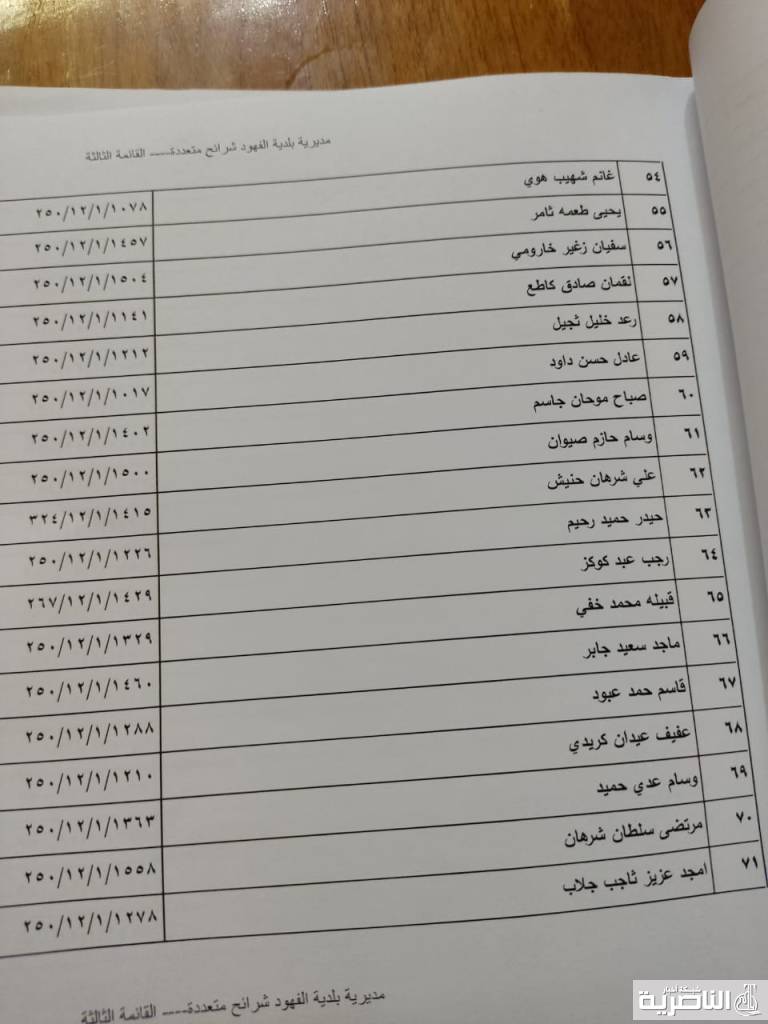 مديرية بلدية الفهود شرائح متعددة---- القائمة الثالثة
٥٤ غانم شهيب هوي ٢٥٠/١٢/١/١٠٧٨
٥٥ يحيى طعمه ثامر ٢٥٠/١٢/١/١٤٥٧
٥٦ سفيان زغير خارومي ٢٥٠/١٢/١/١٥٠٤
٥٧ نقمان صادق كاطع ٢٥٠/١٢/١/١١٤١
٥٨ رعد خليل ثجيل ٢٥٠/١٢/١/١٢١٢
٥٩ عادل حسن داود ٢٥٠/١٢/١/١٠١٧
٦٠ صباح موحان جاسم ٢٥٠/١٢/١/١٤٠٢
٦١ وسام حازم صيوان ٢٥٠/١٢/١/١٥٠٠
٦٢ علي شرهان حنيش ٣٢٤/١٢/١/١٤١٥
٦٣ حيدر حميد رحيم ٢٥٠/١٢/١/١٢٢٦
٦٤ رجب عبد كوكز ٢٦٧/١٢/١/١٤٢٩
٦٥ قبيله محمد خفي ٢٥٠/١٢/١/١٣٢٩
٦٦ ماجد سعيد جابر ٢٥٠/١٢/١/١٤٦٠
٦٧ قاسم حمد عبود ٢٥٠/١٢/١/١٢٨٨
٦٨ عفيف عيدان كريدي ٢٥٠/١٢/١/١٢١٠
٦٩ وسام عدي حميد ٢٥٠/١٢/١/١٣٦٣
٧٠ مرتضى سلطان شرهان ٢٥٠/١٢/١/١٥٥٨
٧١ امجد عزيز ثاجب جلاب ٢٥٠/١٢/١/١٢٧٨
مديرية بلدية الفهود شرائح متعددة---- القائمة الثالثة
شبكة أخبار
الناصرية